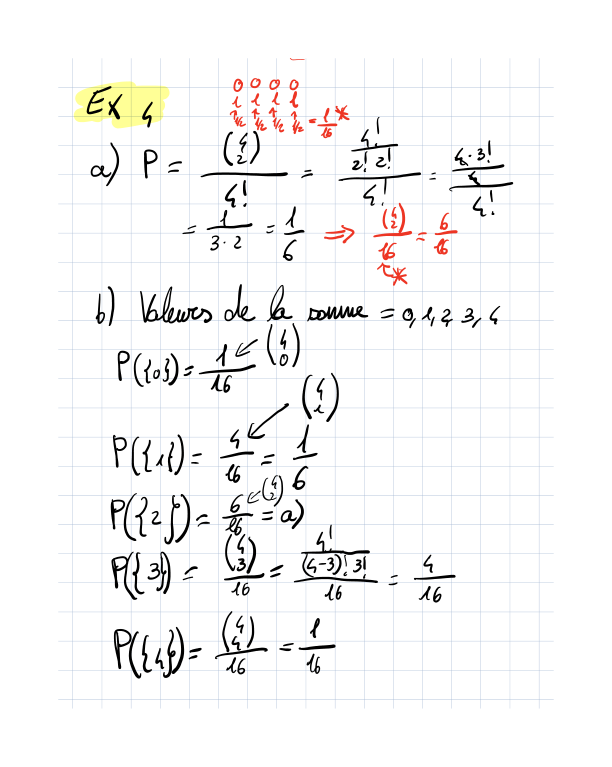 Ex 4
0 0 0 0
1 1 1 1
1/2 1/2 1/2 1/2 = 1/16 *
a) P = (4 2)/4! = (4!/(2! 2!))/4! = ((4·3!)/4)/4!
= 1/(3·2) = 1/6 ⇒ (4 2)/16 = 6/16
↑*
b) Valeurs de la somme = 0, 1, 2, 3, 4
P({0}) = 1/16 ← (4 0)
(4 1)
P({1}) = 4/16 = 1/6
P({2}) = 6/16 ← (4 2) = a)
P({3}) = (4 3)/16 = (4!/((4-3)! 3!))/16 = 4/16
P({4}) = (4 4)/16 = 1/16